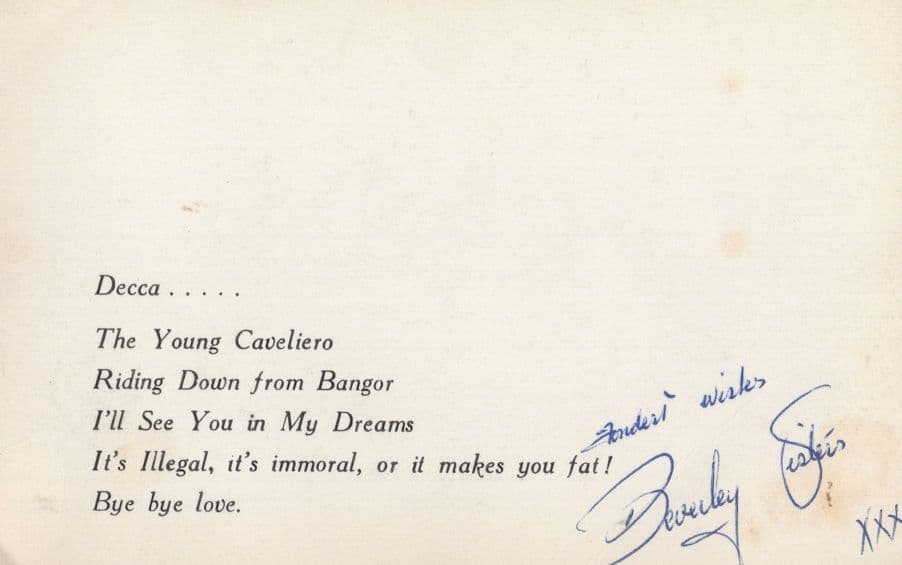 Decca . . . . .
The Young Caveliero
Riding Down from Bangor
I'll See You in My Dreams
It's Illegal, it's immoral, or it makes you fat!
Bye bye love.
Fondest wishes
Beverley Sisters
XXX